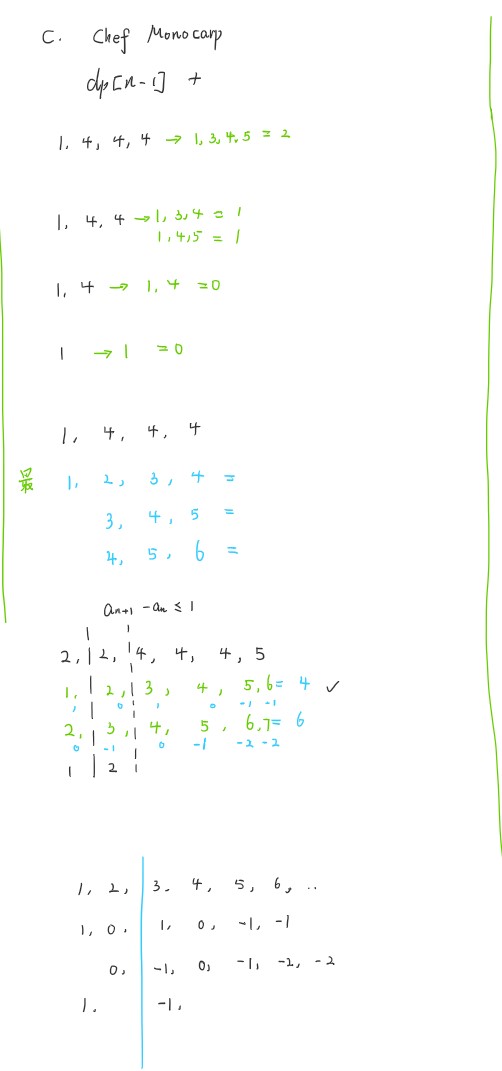 C. Chef Monocarp
dp[n-1] +
1, 4, 4, 4 → 1,3,4,5 = 2
1, 4, 4 → 1, 3, 4 = 1
1,4,5 = 1
1, 4 → 1, 4 = 0
1 → 1 = 0
1, 4, 4, 4
最 1, 2, 3, 4 =
3, 4, 5 =
4, 5, 6 =
an+1 - an ≤ 1
2, 2, 4, 4, 4, 5
1, 2, 3, 4, 5,6 = 4 ✓
1 0 1 0 -1 -1
2, 3, 4, 5, 6,7 = 6
0 -1 0 -1 -2 -2
1 2
1, 2, 3. 4, 5, 6, ..
1, 0, 1, 0, -1, -1
0, -1, 0, -1, -2, -2
1. -1,